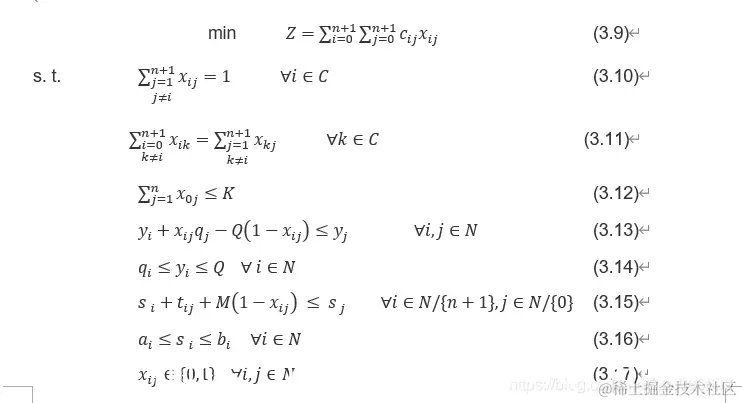 min Z = ∑_{i=0}^{n+1} ∑_{j=0}^{n+1} c_{ij} x_{ij} (3.9)↵
s. t. ∑_{j=1, j≠i}^{n+1} x_{ij} = 1 ∀i ∈ C (3.10)↵
∑_{i=0, k≠i}^{n+1} x_{ik} = ∑_{j=1, k≠i}^{n+1} x_{kj} ∀k ∈ C (3.11)↵
∑_{j=1}^{n} x_{0j} ≤ K (3.12)↵
y_i + x_{ij} q_j − Q(1 − x_{ij}) ≤ y_j ∀i, j ∈ N (3.13)↵
q_i ≤ y_i ≤ Q ∀ i ∈ N (3.14)↵
s_i + t_{ij} + M(1 − x_{ij}) ≤ s_j ∀i ∈ N/{n + 1}, j ∈ N/{0} (3.15)↵
a_i ≤ s_i ≤ b_i ∀i ∈ N (3.16)↵
x_{ij} ∈ {0,1} ∀i, j ∈ N (3.17)↵
https://blog.
@稀土掘金技术社区